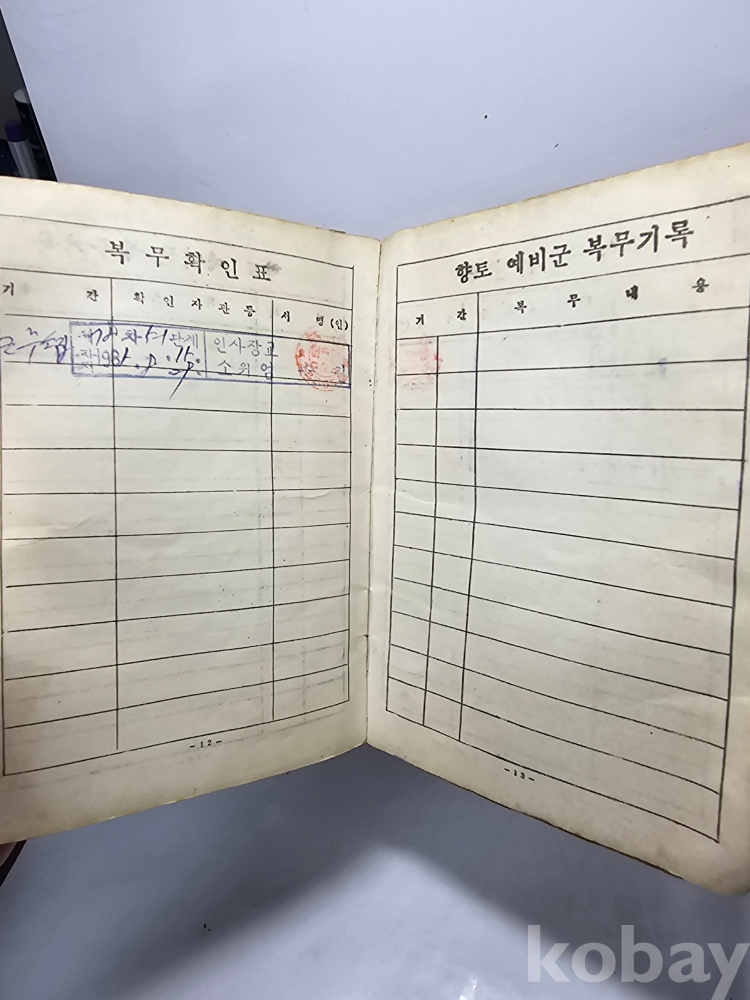 복무확인표
기 간 확인자관등 서 명(인)
인사장교
소위 엄
-12-
향토 예비군 복무기록
기 간 복 무 내 용
-13-
kobay